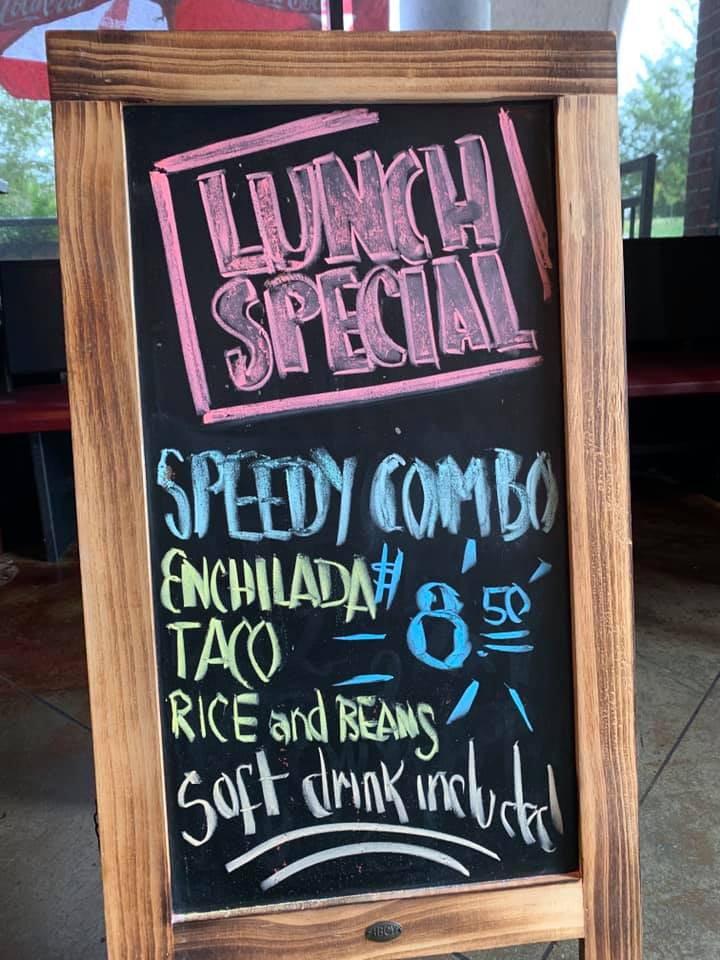 Coca-Cola
LUNCH
SPECIAL
SPEEDY COMBO
ENCHILADA # 8 50
TACO
RICE and BEANS
Soft drink included